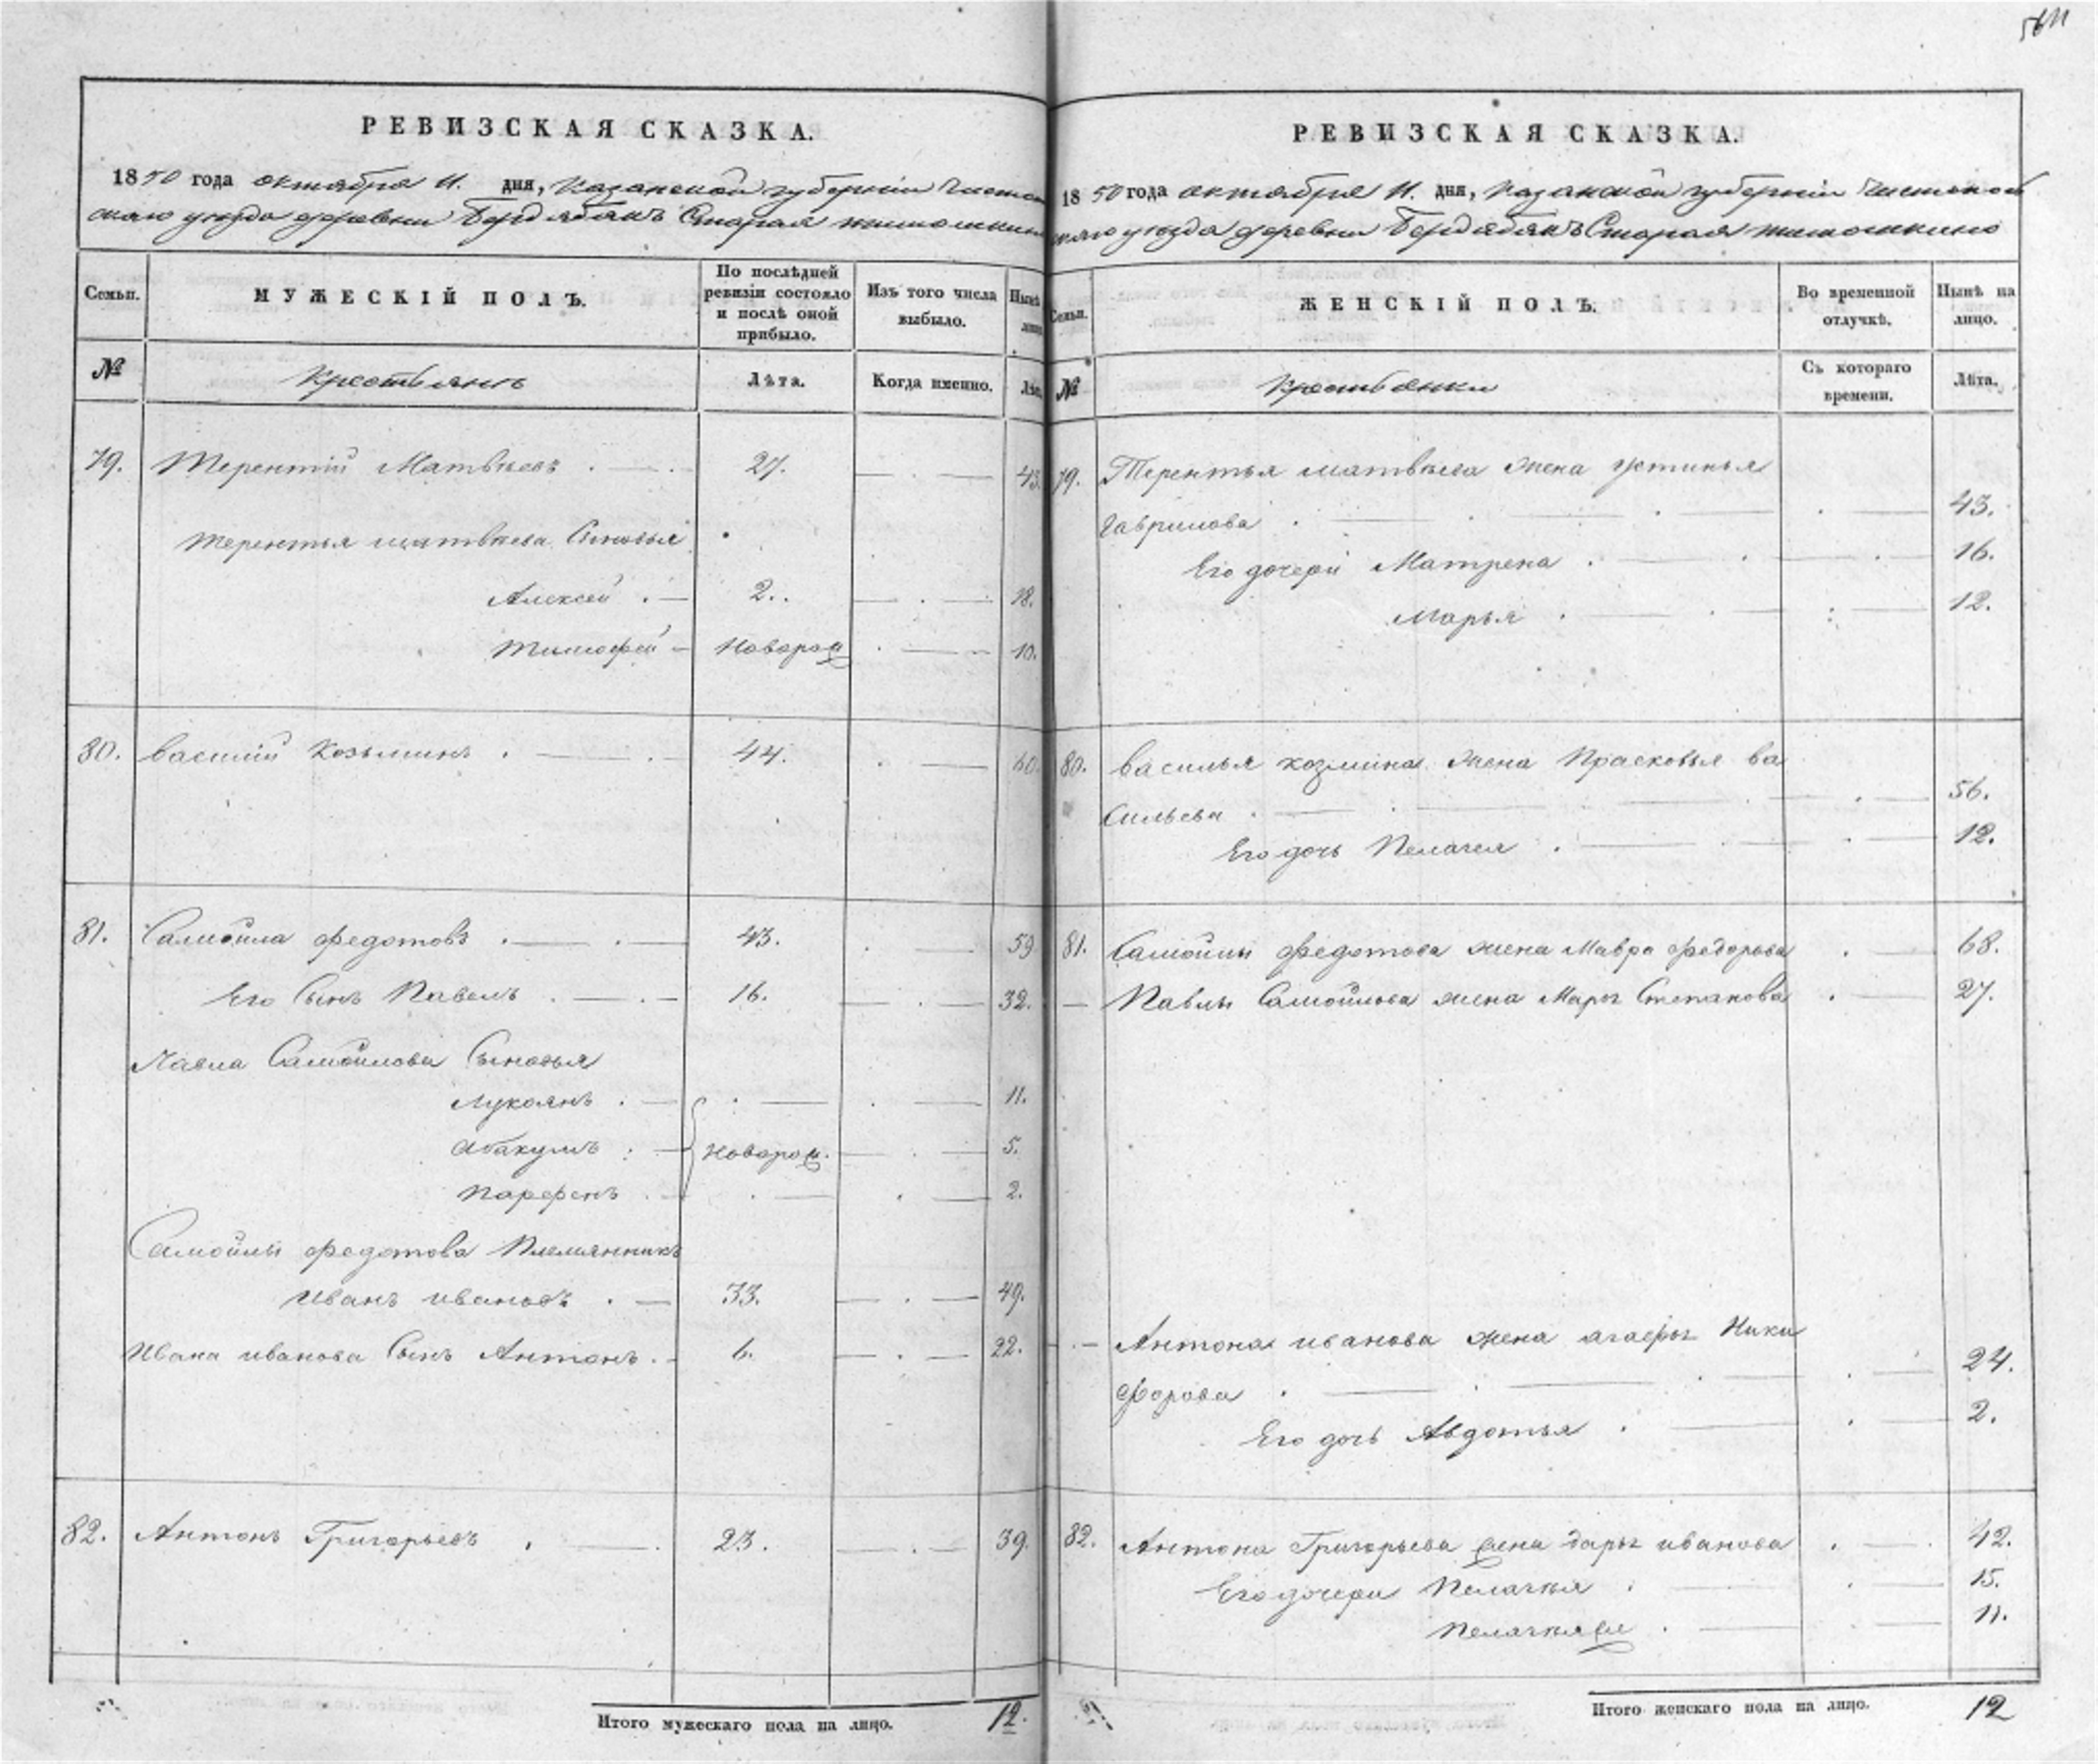 РЕВИЗСКАЯ СКАЗКА.
1850 года октября 11. дня, Казанской губернии Чистополь
скаго уезда деревни Старая тимошкино
Семьи. МУЖЕСКІЙ ПОЛЪ. По послѣдней ревизіи состояло и послѣ оной прибыло. Изъ того числа выбыло. Нынѣ
№ Крестьянъ Лѣта. Когда именно. Лѣта
79. Терентій Матвѣевъ . — . 27. — . — 43.
Терентья матвѣева Сыновья
Алексей . — 2. — . — 18.
Тимофей — Новорож . — 10.
80. василій Козьминъ . — . 44. . — 60.
81. Самойла федотовъ . — . — 43. . — 59
Его Сынъ Павелъ . — . — 16. — . — 32.
Павла Самойлова Сыновья
Лукоянъ . — . — . — 11.
Абакумъ . — Новорож. — . — 5.
Парфенъ . — . — . — 2.
Самойлы федотова Племянникъ
Иванъ ивановъ . — 33. — . — 49.
Ивана иванова Сынъ Антонъ . — 6. — . — 22.
82. Антонъ Григорьевъ . — . 23. — . — 39.
Итого мужескаго пола на лицо. 12.
РЕВИЗСКАЯ СКАЗКА.
1850 года октября 11. дня, Казанской губернии Чистополь
скаго уезда деревни Старая тимошкино
Семьи. ЖЕНСКІЙ ПОЛЪ. Во временной отлучкѣ. Нынѣ на лицо.
№ Крестьянки Съ котораго времени. Лѣта.
79. Терентья матвѣева жена устинья
Гаврилова . — . — . — . — 43.
Его дочери Матрена . — . — . 16.
Марья . — . — . — 12.
80. василья козмина жена Прасковья ва
сильева . — . — . — 56.
Его дочь Пелагея . — . — . — 12.
81. Самойлы федотова жена Мавра федорова . — 68.
— Павлы Самойлова жена Марья Степанова . — 27.
. — Антона иванова жена агафья Ники
форова . — . — . — . — 24.
Его дочь Авдотья . — . — 2.
82. Антона Григорьева жена дарья иванова . — . 42.
Его дочери Пелагѣя . — . — 15.
Пелагѣя . — — 11.
Итого женскаго пола на лицо. 12